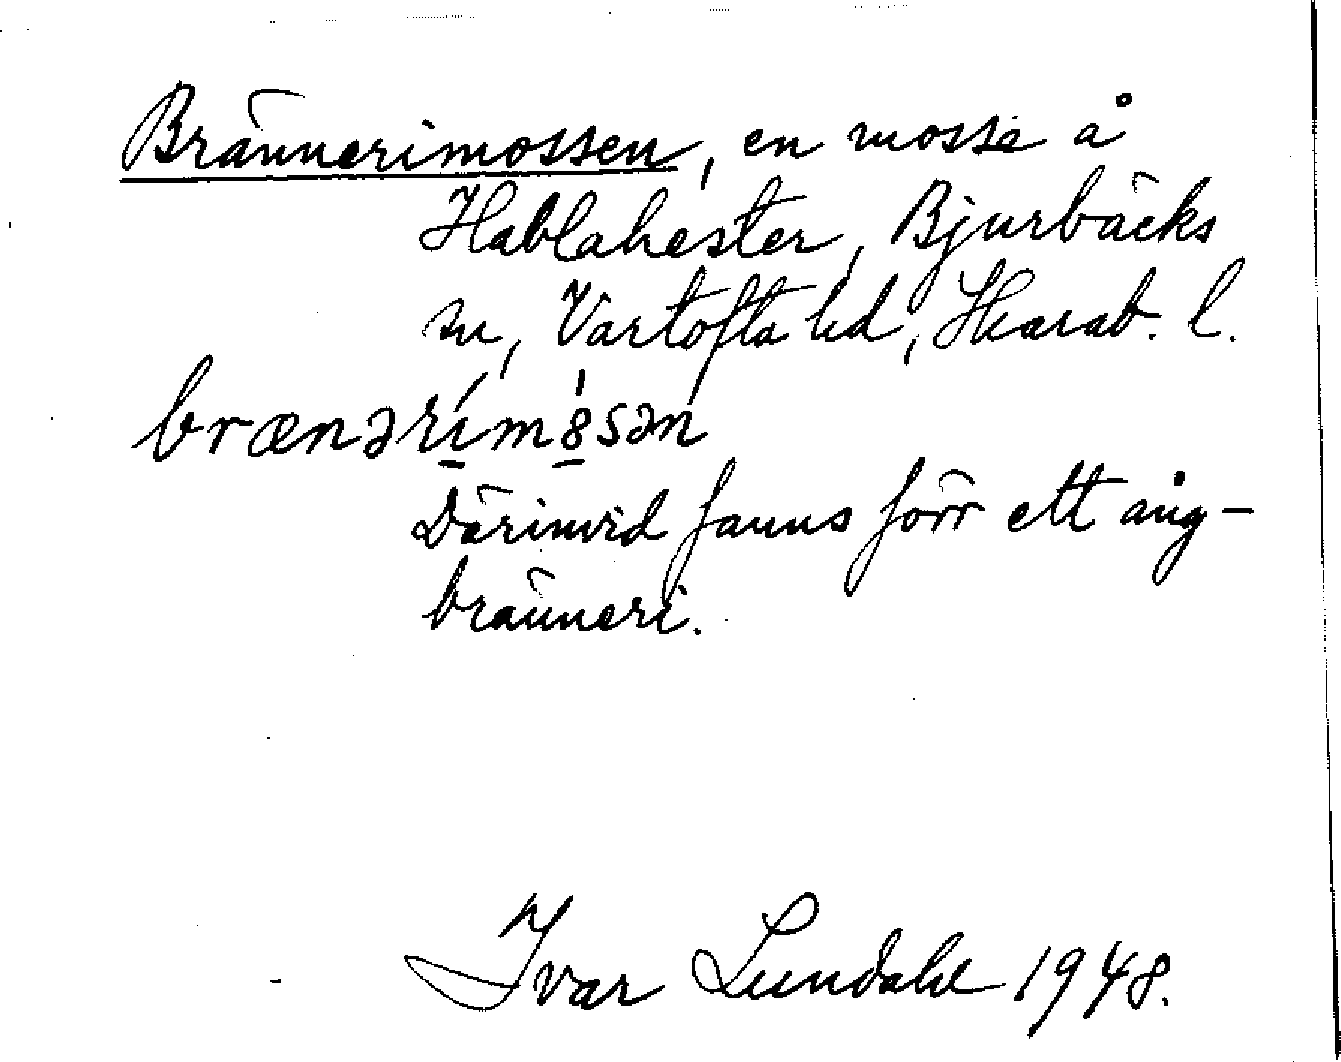 Brännerimossen, en mosse å
Hablahester, Bjurbäcks
sn, Vartofta hd, Skarab. l.
brænərimɵsən
Därinvid fanns förr ett ång-
bränneri.
Ivar Lundahl 1948.